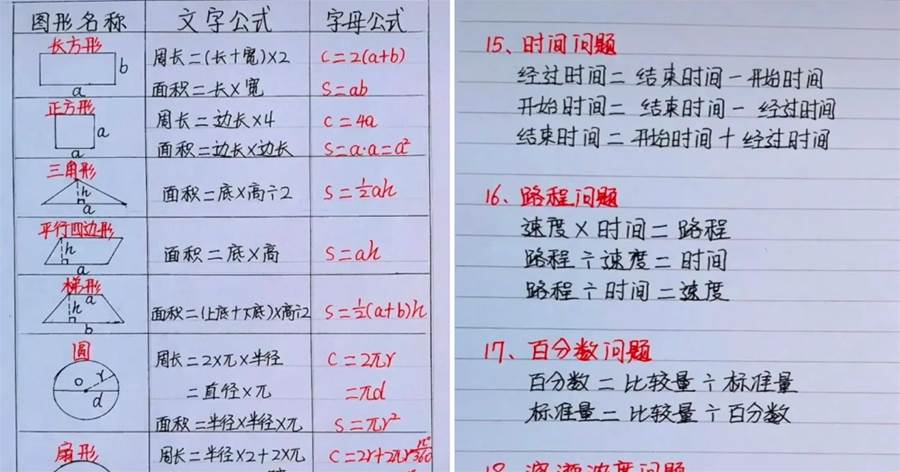 图形名称 文字公式 字母公式
长方形
b
a
周长=(长+宽)×2 C=2(a+b)
面积=长×宽 S=ab
正方形
a
a
周长=边长×4 C=4a
面积=边长×边长 S=a·a=a²
三角形
h
a
面积=底×高÷2 S=½ah
平行四边形
h
a
面积=底×高 S=ah
梯形
a
h
b
面积=(上底+下底)×高÷2 S=½(a+b)h
圆
O r
d
周长=2×π×半径 C=2πr
=直径×π =πd
面积=半径×半径×π S=πr²
扇形
周长=半径×2+2×π C=2r+2πr
15、时间问题
经过时间=结束时间-开始时间
开始时间=结束时间-经过时间
结束时间=开始时间+经过时间
16、路程问题
速度×时间=路程
路程÷速度=时间
路程÷时间=速度
17、百分数问题
百分数=比较量÷标准量
标准量=比较量÷百分数